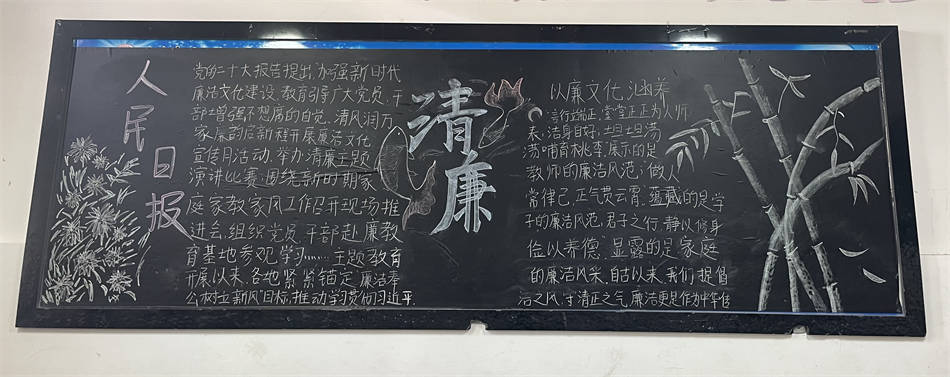 人民日报
党的二十大报告提出,加强新时代
廉洁文化建设,教育引导广大党员,干
部增强不想腐的自觉,清风润万
家 廉韵启新程 开展廉洁文化
宣传月活动,举办清廉主题
演讲比赛;围绕新时期家
庭家教家风工作召开现场推
进会,组织党员干部赴廉教
育基地参观学习……主题教育
开展以来,各地紧紧锚定“廉洁奉
公树立新风”目标,推动学习贯彻习近平
清廉
以廉文化涵养
言行端正,堂堂正正为人师
表,洁身自好,坦坦荡
荡哺育桃李,展示的是
教师的廉洁风范;做人
常律己,正气贯云霄,蕴藏的是学
子的廉洁风范,君子之行,静以修身
俭以养德,显露的是家庭
的廉洁风采,自古以来,我们提倡
洁之风,清正之气,廉洁更是作为中华传